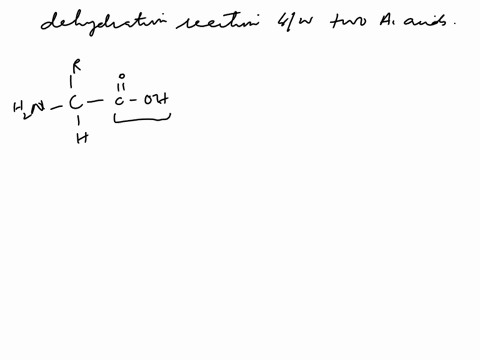 dehydration reaction b/w two A. acids.
R
O
H₂N - C - C - OH
H